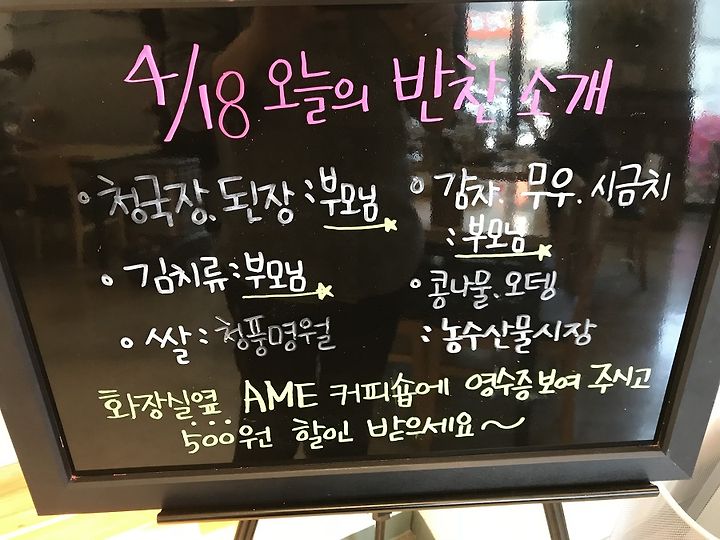 4/18 오늘의 반찬 소개
• 청국장. 된장 : 부모님
• 김치류 : 부모님
• 쌀 : 청풍명월
• 감자. 무우. 시금치
: 부모님
• 콩나물. 오뎅
: 농수산물시장
화장실옆 AME 커피숍에 영수증보여 주시고
500원 할인 받으세요~